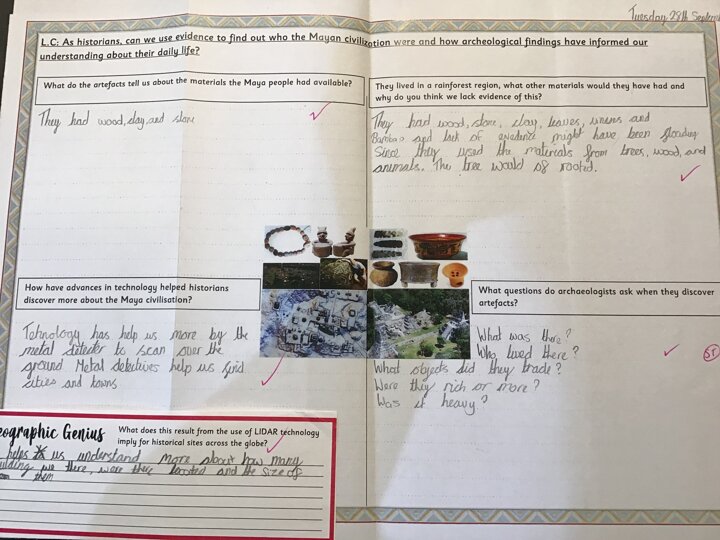 Tuesday 28th Septem
L.C: As historians, can we use evidence to find out who the Mayan civilization were and how archeological findings have informed our
understanding about their daily life?
What do the artefacts tell us about the materials the Maya people had available?
They had wood, clay, and stone
They lived in a rainforest region, what other materials would they have had and
why do you think we lack evidence of this?
They had wood, stone, clay, leaves, and
Bamboo and lack of evedince might have been flooding
Since they used the materials from trees, wood, and
animals. The tree would of rooted.
How have advances in technology helped historians
discover more about the Maya civilisation?
Tehnology has help us more by the
metal detecter to scan over the
ground Metal detectives help us find
cities and towns
What questions do archaeologists ask when they discover
artefacts?
What was there?
Who lived there?
What objects did they trade?
Were they rich or more?
Was it heavy?
ST
eographic Genius
What does this result from the use of LIDAR technology
imply for historical sites across the globe?
helps us understand more about how many
uilding we there, were they located and the size of
them